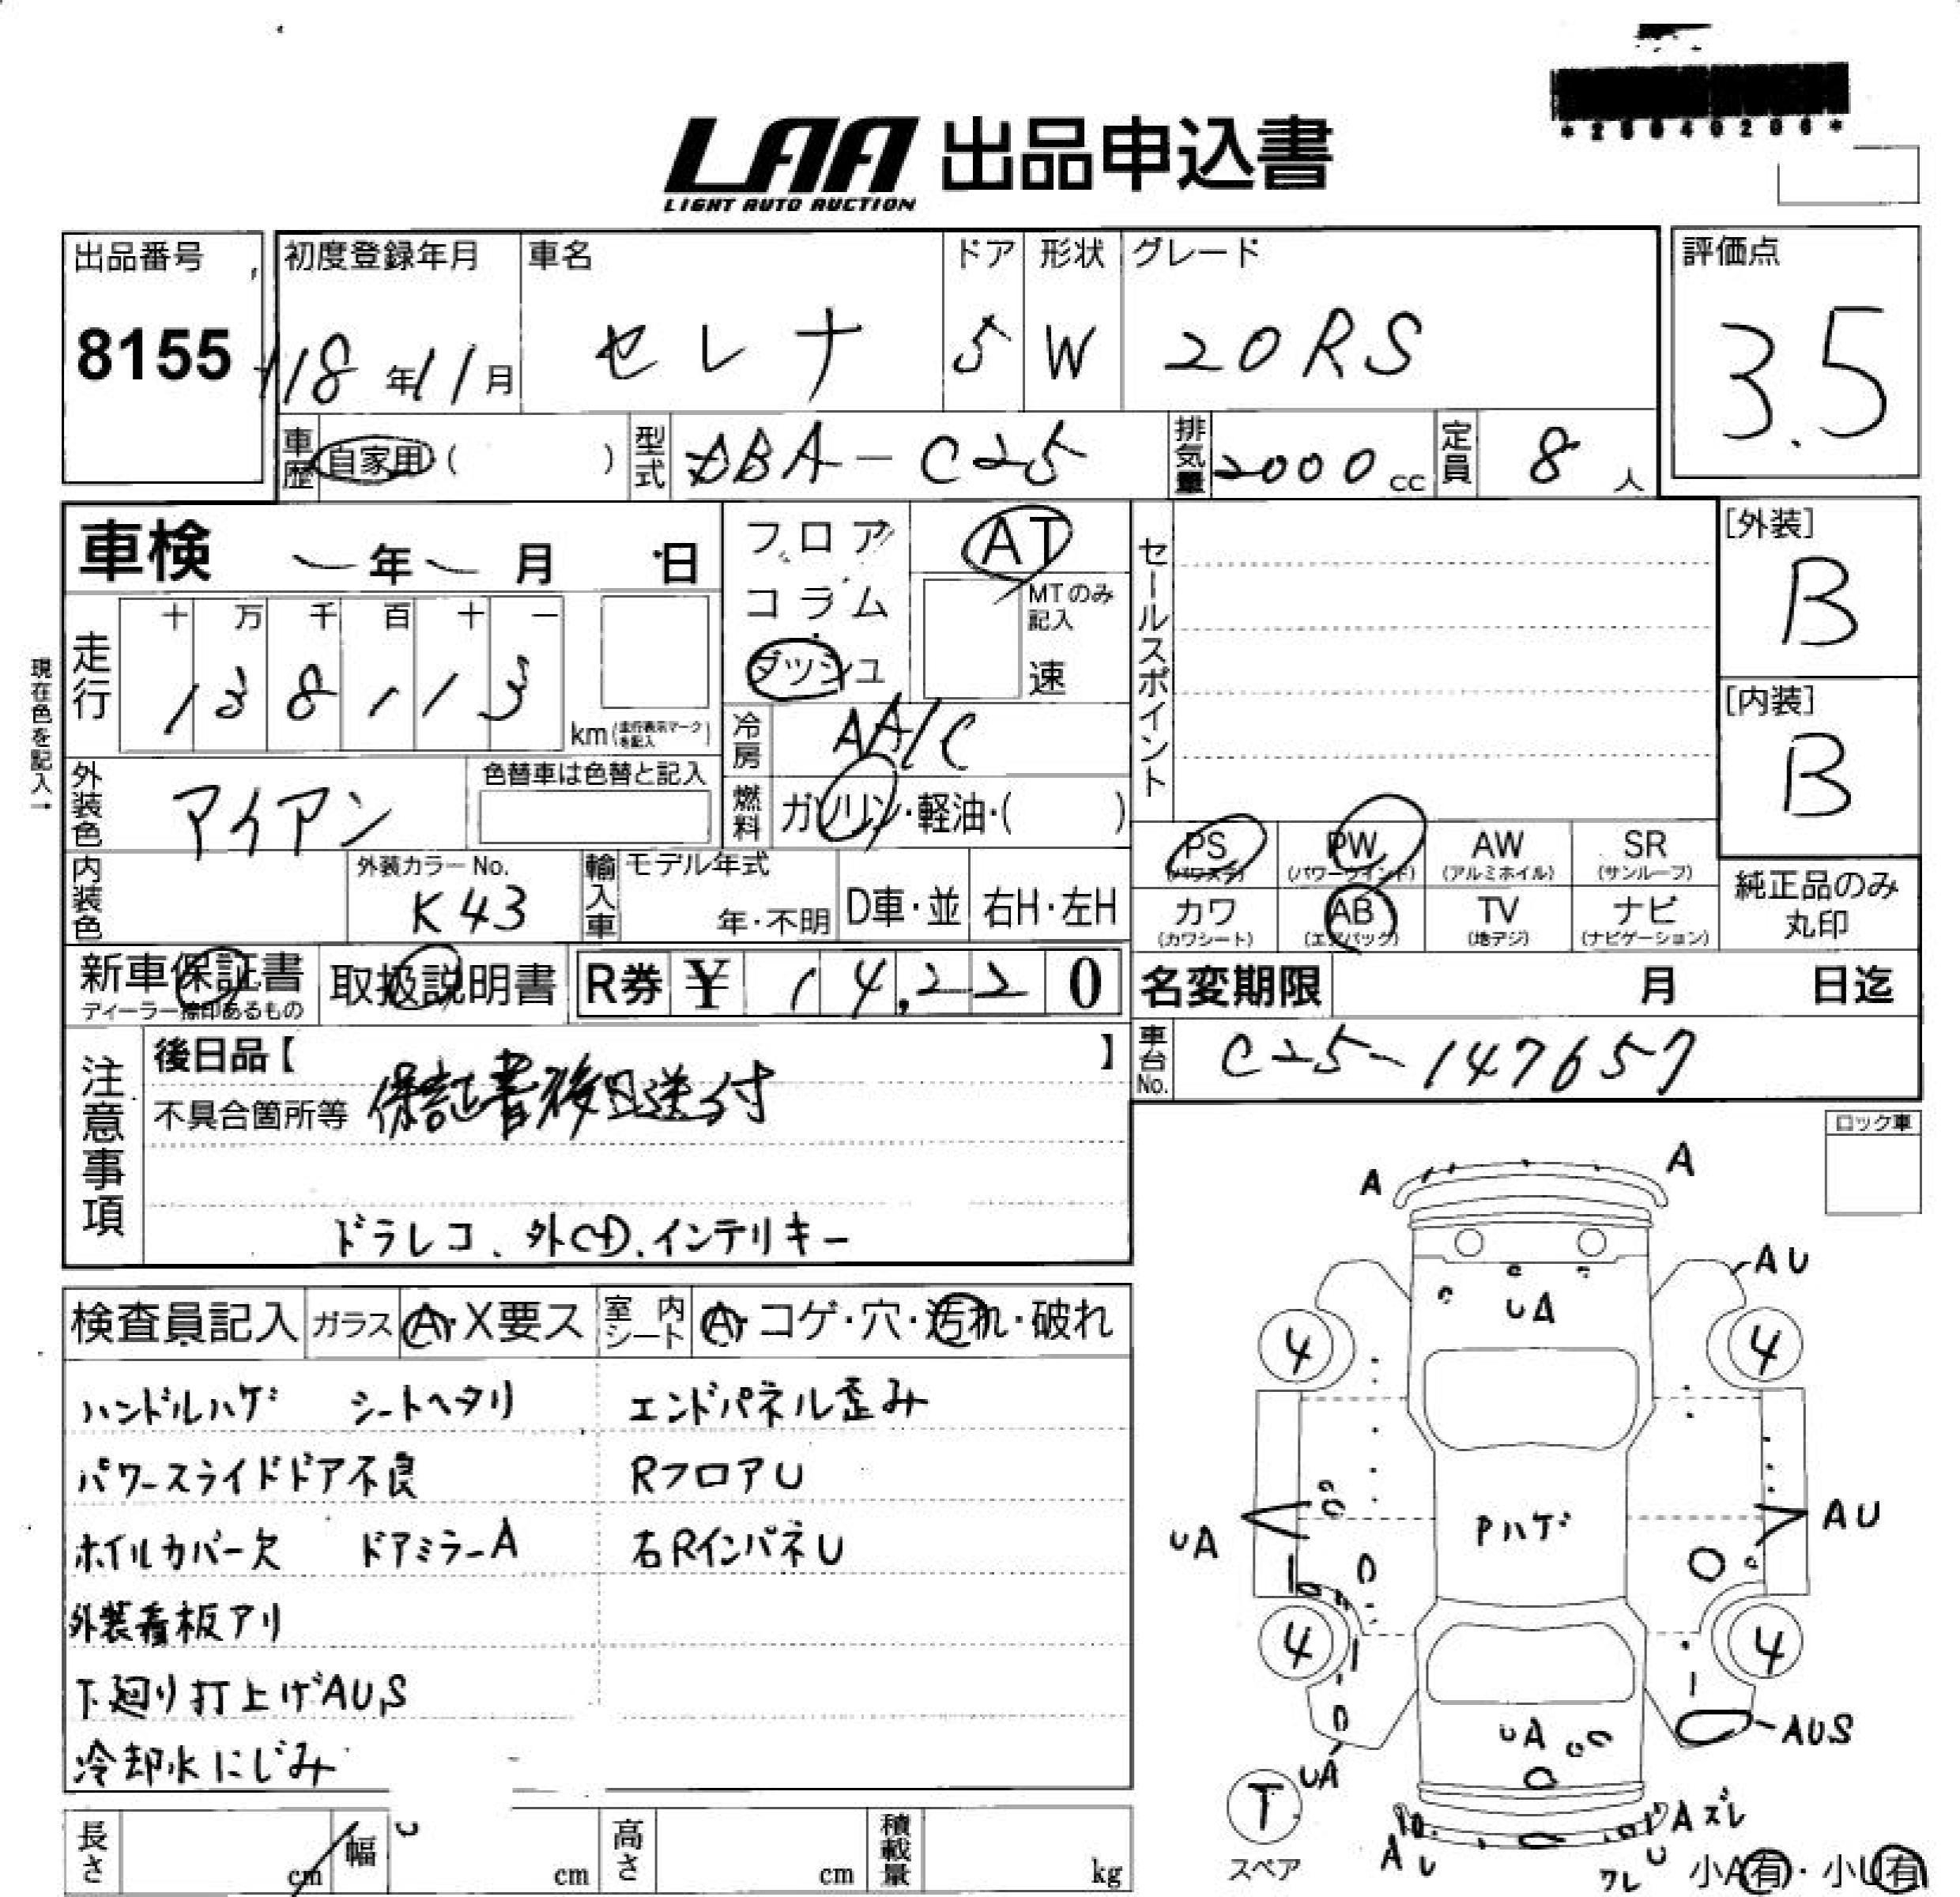 LAA 出品申込書
LIGHT AUTO AUCTION
出品番号 初度登録年月 車名 ドア 形状 グレード 評価点
8155 18年11月 セレナ 5 W 20RS 3.5
車歴 自家用 ( ) 型式 DBA-C25 排気量 2000cc 定員 8人
車検 年 月 日 フロア AT セールスポイント [外装]
コラム MTのみ記入 B
十 万 千 百 十 一
走行 1 3 8 1 1 3 km (走行表示マークを記入) ダッシュ 速 [内装]
現在色を記入→
冷房 AA/C B
外装色 アイアン 色替車は色替と記入 燃料 ガソリン・軽油・( )
PS (パワステ) PW (パワーウインド) AW (アルミホイル) SR (サンルーフ)
内装色 外装カラーNo. K43 輸入車 モデル年式 年・不明 D車・並 右H・左H
カワ (カワシート) AB (エアバック) TV (地デジ) ナビ (ナビゲーション) 純正品のみ丸印
新車保証書 取扱説明書 R券 ¥ 14,220 名変期限 月 日迄
ディーラー捺印あるもの
車台No. C25-147657
注意事項 後日品【 】
不具合箇所等 保証書後日送付
ドラレコ、外CD、インテリキー
ロック車
検査員記入 ガラス A・X要ス 室内シート A・コゲ・穴・汚れ・破れ
ハンドルハゲ シートヘタリ エンドパネル歪み
パワースライドドア不良 RフロアU
ホイルカバー欠 ドアミラーA 右RインパネU
外装看板アリ
下廻り打上げAU,S
冷却水にじみ
長さ cm 幅 cm 高さ cm 積載量 kg
A A
AU
UA
4 4
UA Pハゲ AU
4 4
UA AUS
UA
T
スペア
A U
Aズレ
ワレ U
小A有・小U有